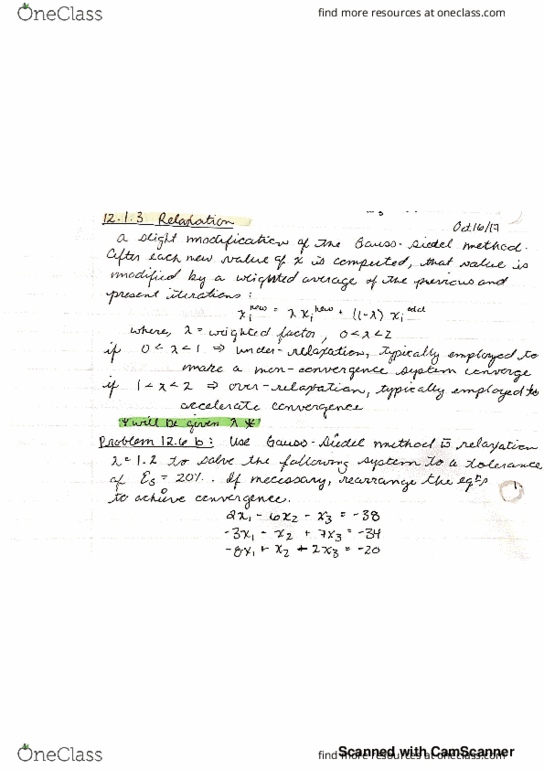 OneClass
find more resources at oneclass.com
12.1.3 Relaxation
Oct 16/17
a slight modification of the Gauss-Siedel method.
After each new value of x is computed, that value is
modified by a weighted average of the previous and
present iterations:
xᵢⁿᵉʷ = λ xᵢⁿᵉʷ + (1-λ) xᵢᵒˡᵈ
where, λ = weighted factor, 0<λ<2
if 0<λ<1 ⇒ under-relaxation, typically employed to
make a non-convergence system converge
if 1<λ<2 ⇒ over-relaxation, typically employed to
accelerate convergence
* will be given λ *
Problem 12.6 b: Use Gauss-Siedel method c̄ relaxation
λ=1.2 to solve the following system to a tolerance
of Es = 20%. If necessary, rearrange the eqⁿˢ
to achieve convergence.
2x₁ - 6x₂ - x₃ = -38
-3x₁ - x₂ + 7x₃ = -34
-8x₁ + x₂ + 2x₃ = -20
OneClass
find more resources at oneclass.com
Scanned with CamScanner